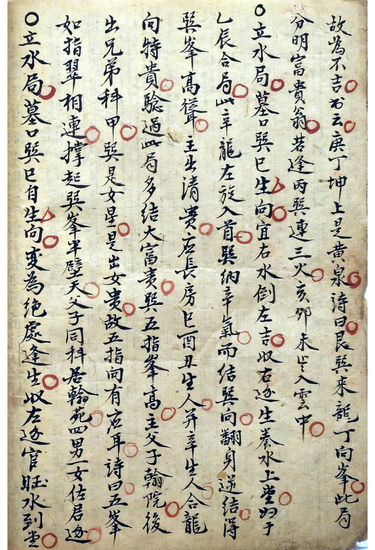 故為不吉書云庚丁坤上是黃泉詩曰艮巽來龍丁向峯此局
分明富貴翁若逢丙巽連三火亥卯未豈入雲中
○立水局墓口巽巳生向宜右水倒左吉收右邊生養水上堂歸于
乙辰合局此辛龍左旋入首巽納辛氣而結巽向翻身逆結得
巽峯高聳主出清貴應長房巳酉丑生人并辛生人合龍
向特貴驗過此局多結大富貴巽五指峯高主父子翰院後
出兄弟科甲巽是女星是出女貴故五指向有應耳詩曰五峯
如指翠相連撐起巽峯半壁天父子同科居翰苑四男一女佐君邊
○立水局墓口巽巳自生向變為絕處逢生收左邊官旺水到堂